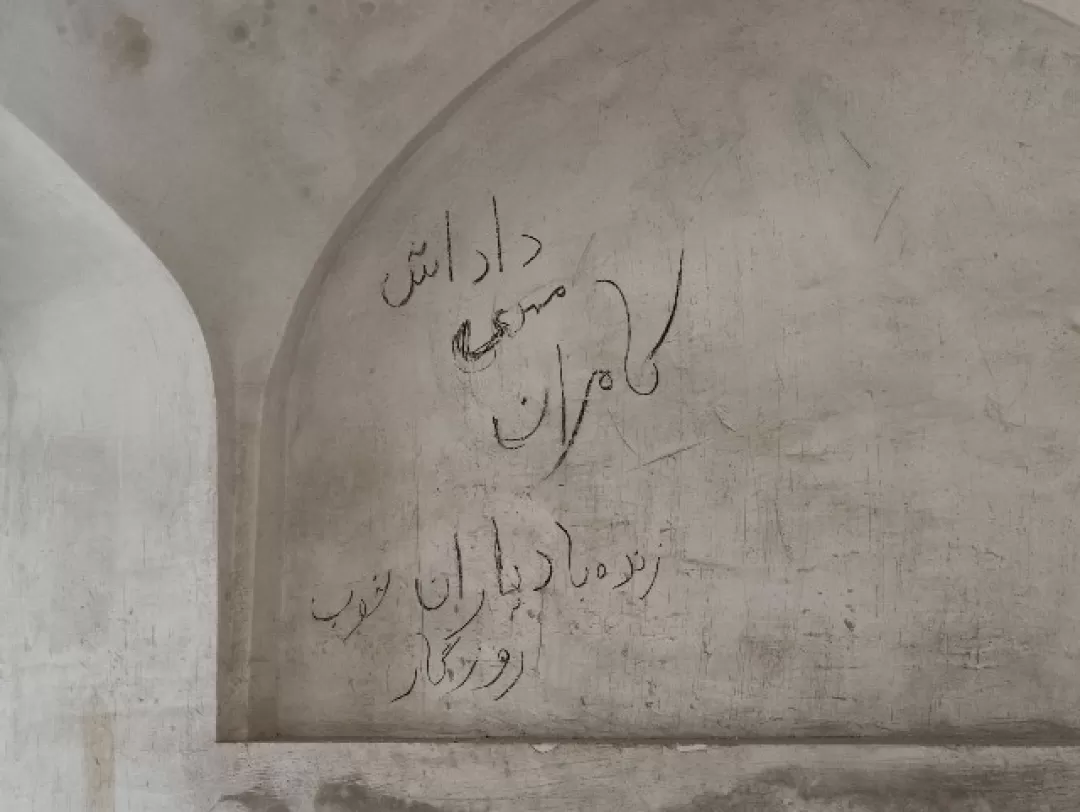 داداش
مهدی
کامران
زنده باد یاران خوب
روزگار